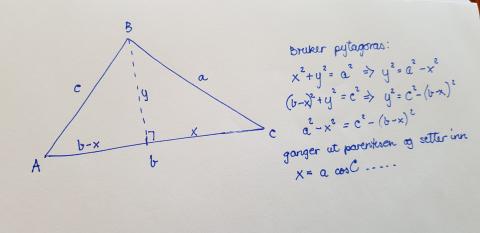 B
c
a
y
b-x
x
A
b
C
Bruker pytagoras:
x²+y²=a² => y²=a²-x²
(b-x)²+y²=c² => y²=c²-(b-x)²
a²-x²=c²-(b-x)²
ganger ut parentesen og setter inn
x= a cosC .....